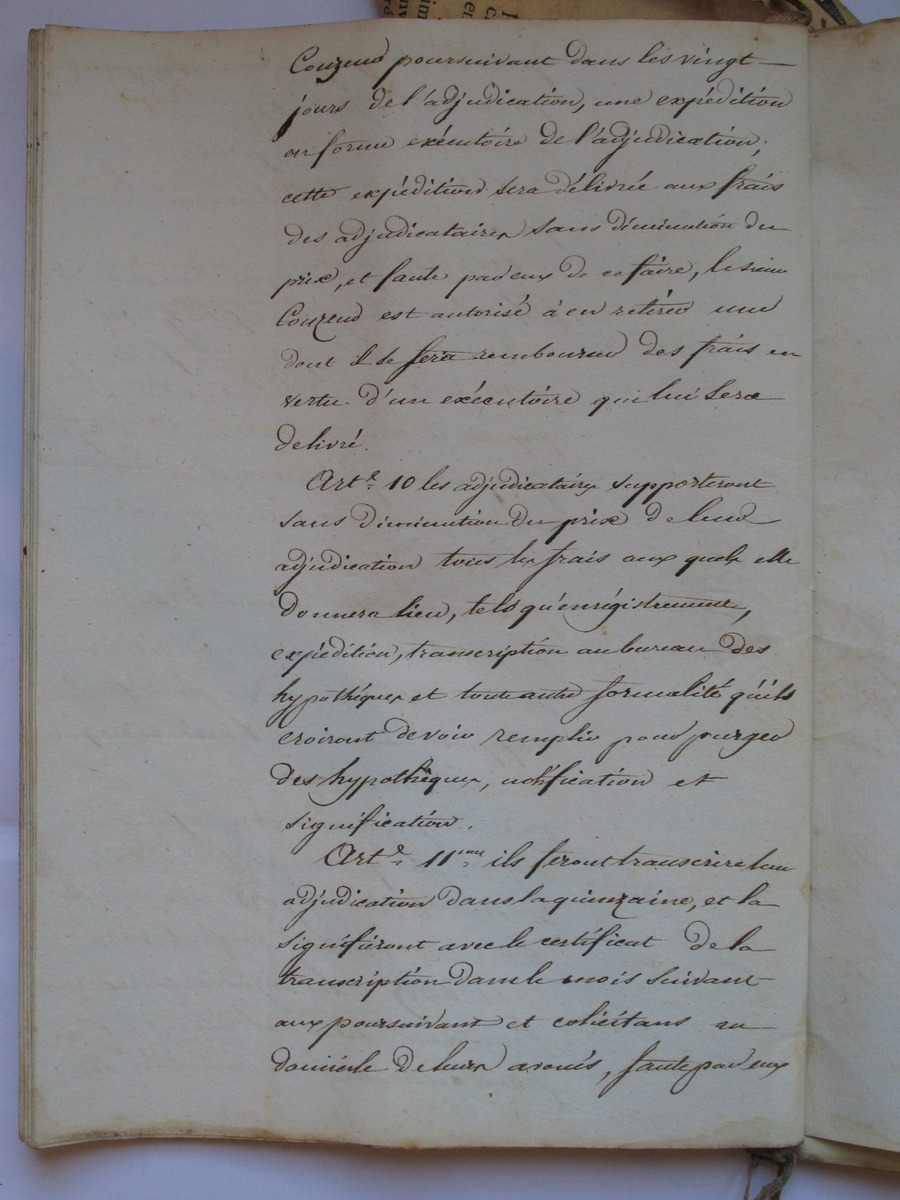 Couzend poursuivant dans les vingt
jours de l'adjudication, une expédition
en forme exécutoire de l'adjudication,
cette expédition sera délivrée aux frais
des adjudicataires sans diminution du
prix, et faute par eux de ce faire, le sieur
Couzend est autorisé à en retirer une
dont il se fera rembourser des frais en
vertu d'un exécutoire qui lui sera
délivré.
Art.e 10 les adjudicataires supporteront
sans diminution du prix de leur
adjudication tous les frais aux quels elle
donnera lieu, tels qu'enrégistrement,
expédition, transcription au bureau des
hypothéques et toute autre formalité qu'ils
croiront devoir remplir pour purger
des hypothèques, notification et
signification.
Art.e 11me ils feront transcrire leur
adjudication dans la quinzaine, et la
signifieront avec le certificat de la
transcription dans le mois suivant
aux poursuivant et colicitans au
domicile de leurs avoués, faute par eux